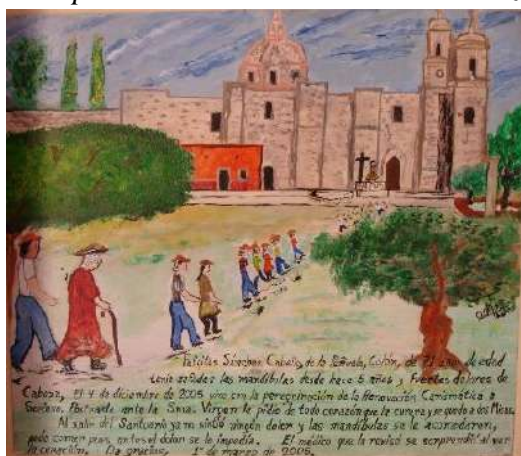 Sánchez Cabello, de la Peñuela, Colón, de 71 años de edad
tenía zafadas las mandíbulas desde hace 5 años y fuertes dolores de
Cabeza, El 4 de diciembre de 2005 vino con la peregrinación de la Renovación Carismática a
Soriano. Postrada ante la Sma. Virgen le pidió de todo corazón que la curara y se quedó a dos Misas.
Al salir del Santuario ya no sintió ningún dolor y las mandíbulas se le acomodaron,
pudo comer pues antes el dolor se lo impedía. El médico que la revisó se sorprendió al ver
la curación. Da gracias, 1° de marzo de 2005.